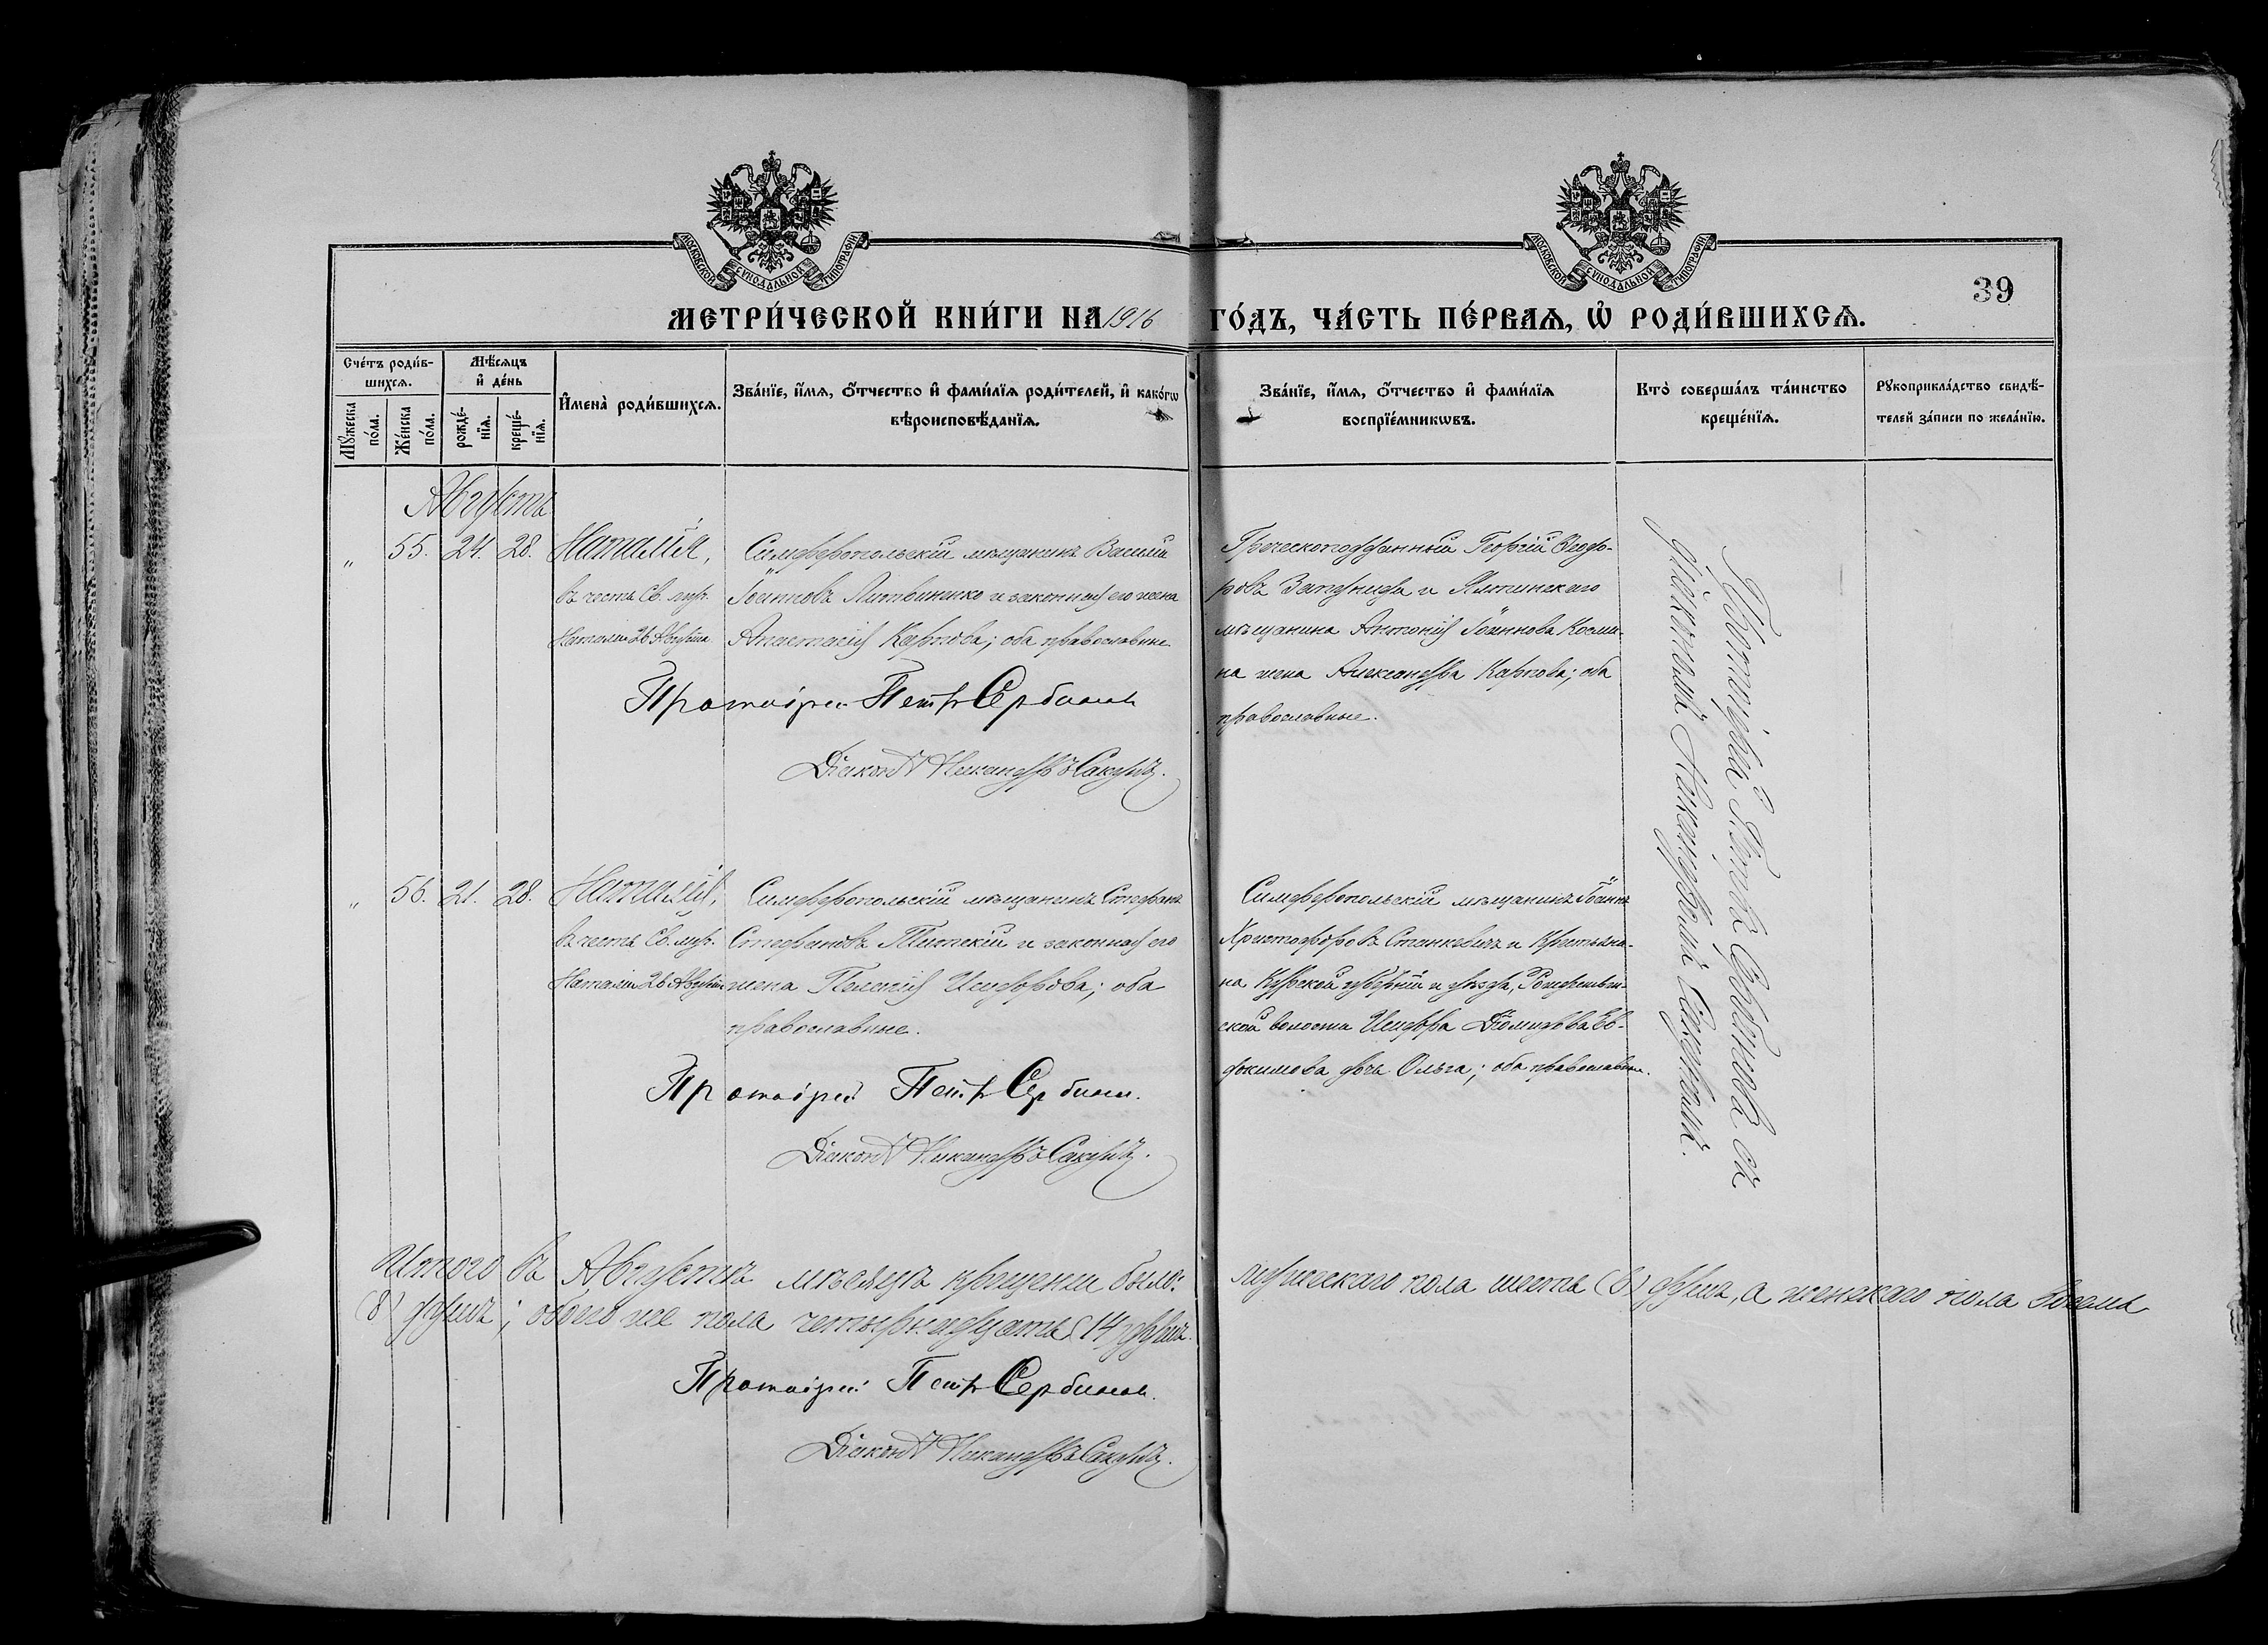 МОСКОВСКОЙ СУНОДАЛЬНОЙ ТИПОГРАФІИ
МОСКОВСКОЙ СУНОДАЛЬНОЙ ТИПОГРАФІИ
39
МЕТРИ́ЧЕСКОЙ КНИ́ГИ НА 1916 ГО́ДЪ, ЧА́СТЬ ПЕ́РВАѦ, Ѡ҆ РОДИ́ВШИХСѦ.
Сче́тъ роди́в-
шихсѧ.
Мѣ́сѧцъ
и҆ де́нь
Мꙋ́жеска
по́ла.
Же́нска
по́ла.
рожде́-
нїѧ.
креще́-
нїѧ.
И҆мена̀ роди́вшихсѧ.
Зва́нїе, и҆́мѧ, ѻ҆́тчество и҆ фами́лїѧ роди́телей, и҆ како́гѡ
вѣроисповѣ́данїѧ.
Зва́нїе, и҆́мѧ, ѻ҆́тчество и҆ фами́лїѧ
воспрїе́мникѡвъ.
Кто̀ соверша́лъ та́инство
креще́нїѧ.
Рꙋкоприкла́дство свидѣ́-
телей за́писи по жела́нїю.
Августъ
" 55. 24. 28. Наталія,
въ честь Св. муч.
Наталіи 26 Августа
Симферопольскій мѣщанинъ Василій
Іоанновъ Литвиненко и законная его жена
Анастасія Карпова; оба православные.
Протоіерей Петръ Сербиновъ
Діаконъ Никандръ Сакунъ.
Греческоподданный Георгій Ѳеодо-
ровъ и Ялтинскаго
мѣщанина Антонія Іоаннова Косми-
на жена Александра Карпова; оба
православные.
" 56. 21. 28. Наталія,
въ честь Св. муч.
Наталіи 26 Августа
Симферопольскій мѣщанинъ Стефанъ
Стефановъ и законная его
жена Пелагія Исидорова; оба
православные.
Протоіерей Петръ Сербиновъ.
Діаконъ Никандръ Сакунъ.
Симферопольскій мѣщанинъ Іоаннъ
Христофоровъ Станкевичъ и крестьяни-
на Курской губерніи и уѣзда, Рождествен-
ской волости Исидора Діомидова Ев-
докимова дочь Ольга; оба православные.
Протоіерей Петръ Сербиновъ съ
діакономъ Никандромъ Сакуномъ.
Итого въ Августѣ мѣсяцѣ крещены было: мужескаго пола шесть (6) душъ, а женскаго пола восемь
(8) душъ; обоего же пола четырнадцать (14) душъ.
Протоіерей Петръ Сербиновъ.
Діаконъ Никандръ Сакунъ.